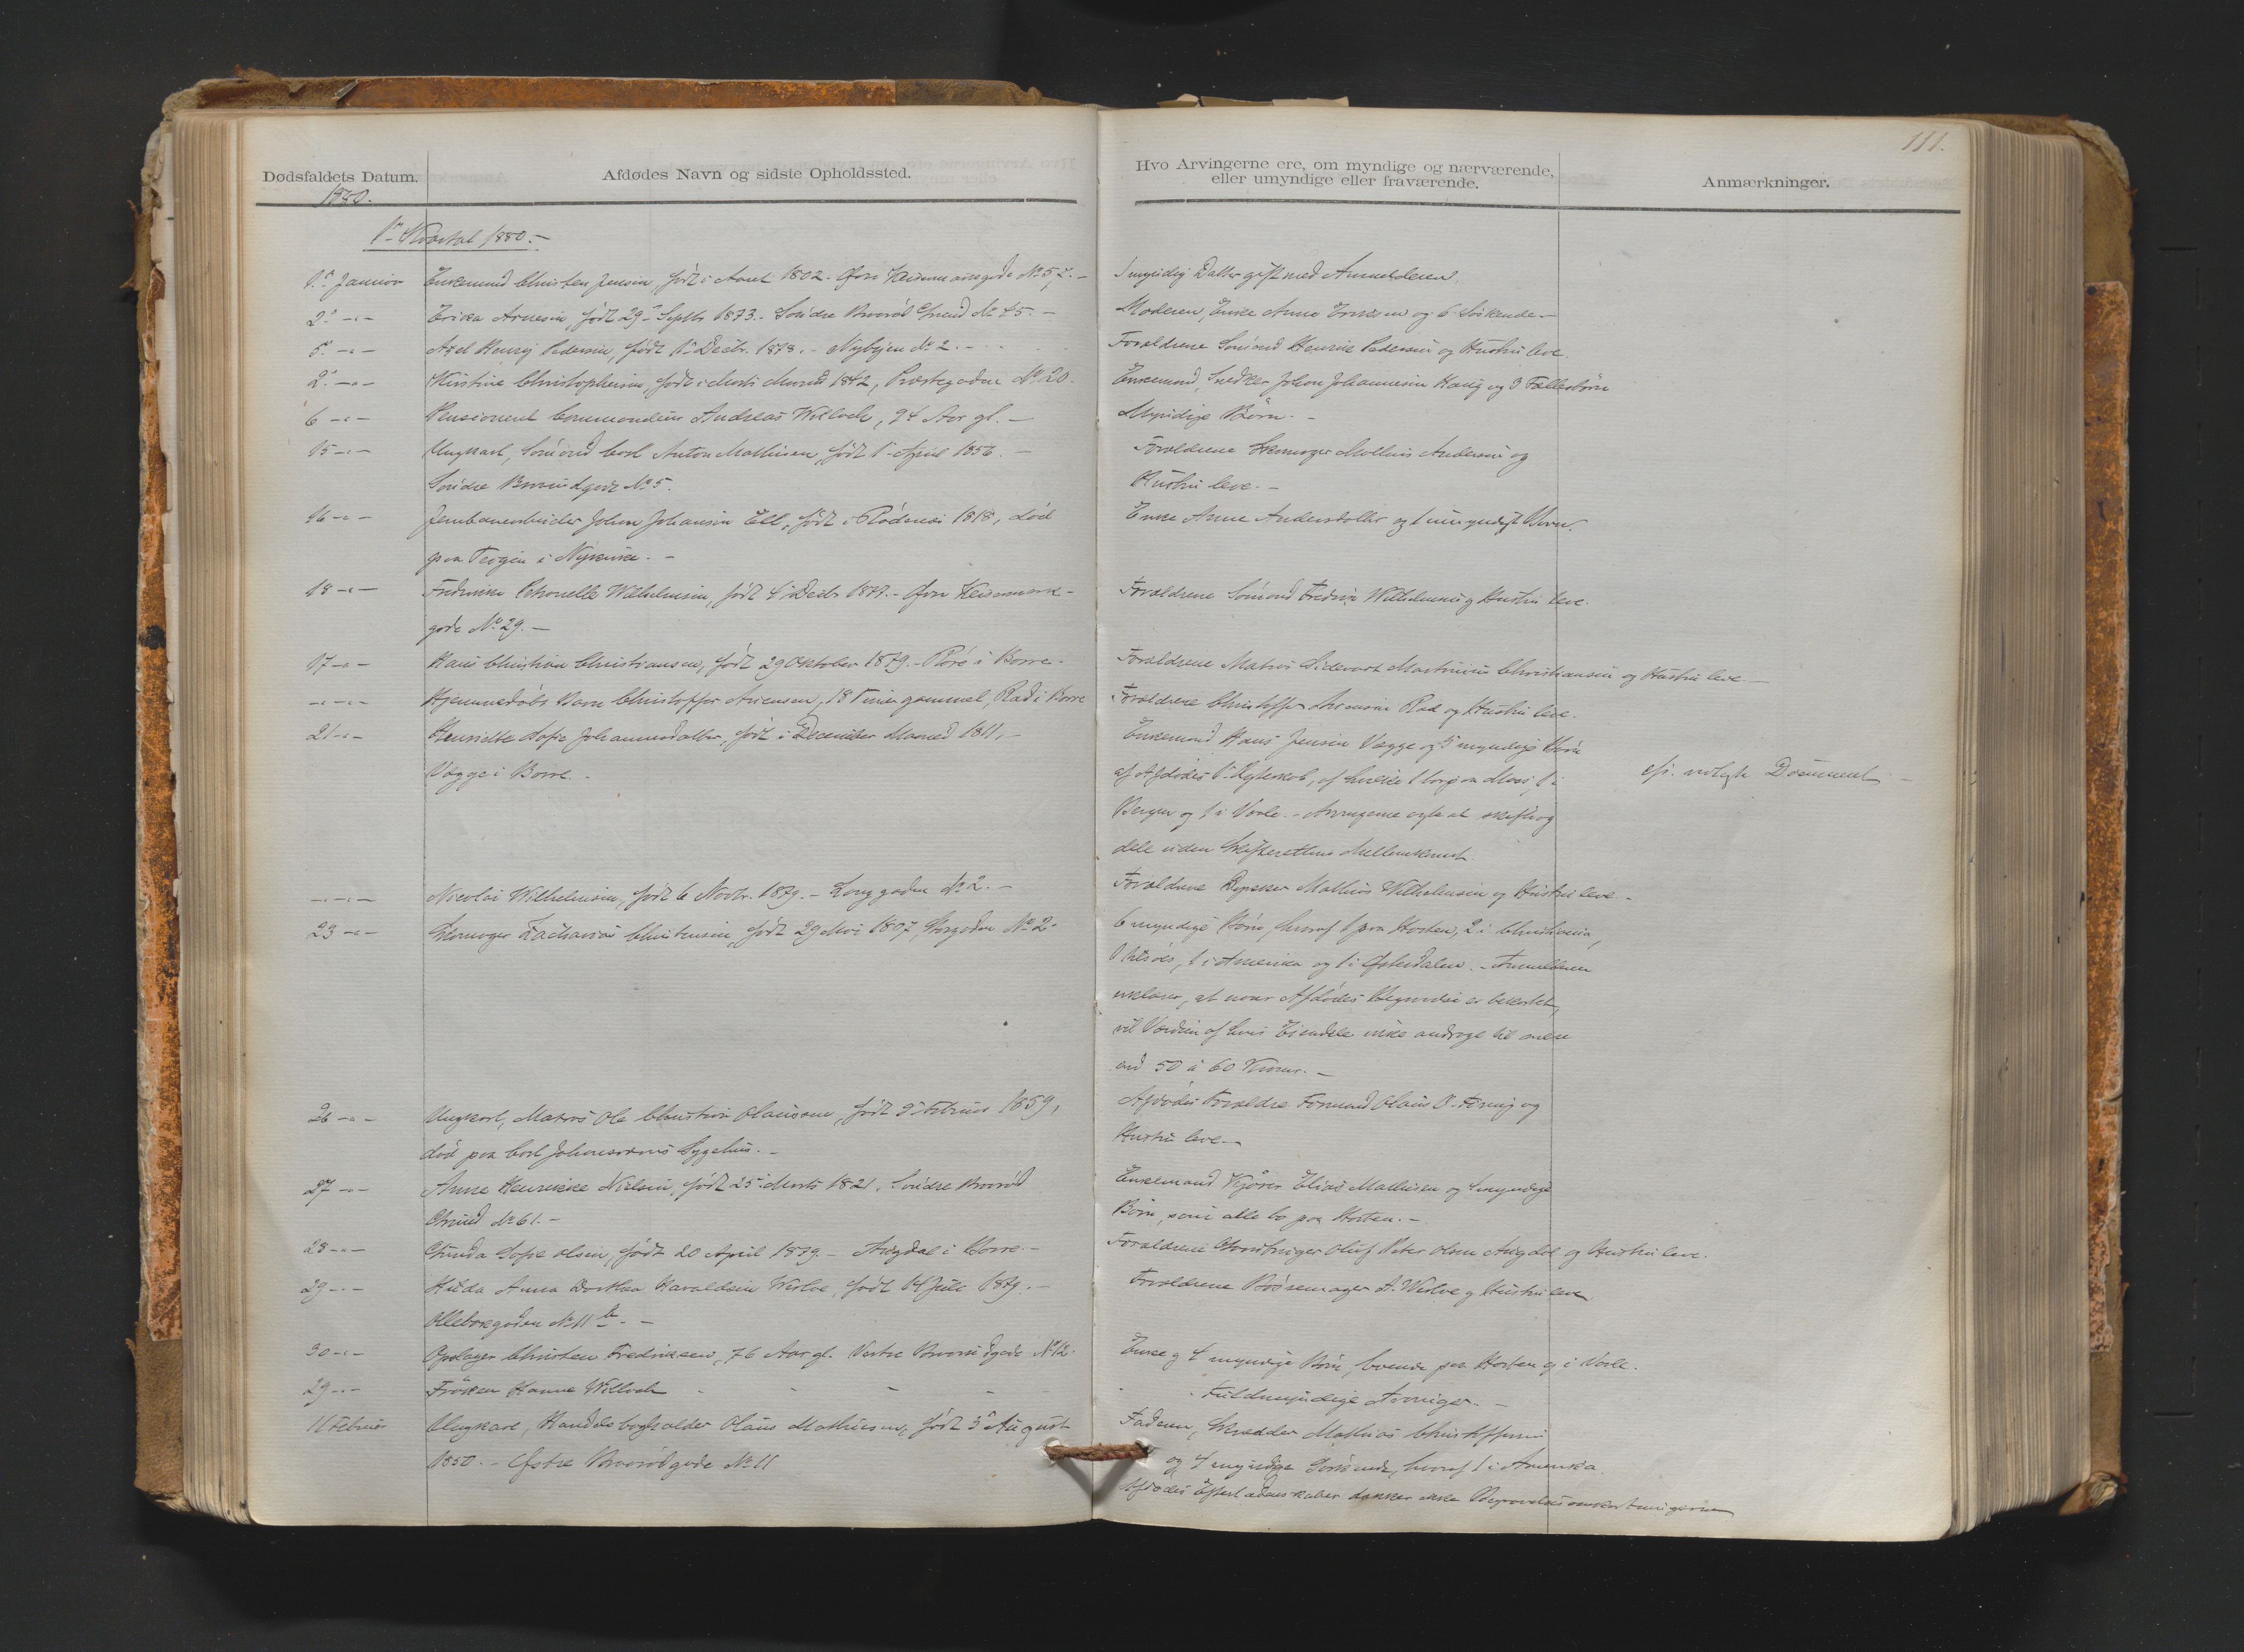 111.
Dødsfaldets Datum.
Afdødes Navn og sidste Opholdssted.
Hvo Arvingerne ere, om myndige og nærværende,
eller umyndige eller fraværende.
Anmærkninger.
1880.
1ste Kvartal 1880.-
1ste Januar Enkemand Christen Jensen, født i Aaret 1802. Øvre No 5
1 myndig Datter gift med Anmelderen.
2 -"- Erika Arnesen, født 29 Septbr 1873.- Søndre Braarød Grund No 45.-
Moderen, Enke Anne Ernksen og 6 Søskende.-
5 -"- Axel Henrij Pedersen, født 1 Decbr. 1878.- Nybyen No 2.-
Forældrene Sømand Henrik Pedersen og Hustru leve.
2 -"- Kirstine Christophersen, født i Marts Maaned 1842, Præstegaden No 20.
Enkemand, Snedker Johan Johannesen Haug og 3 Fællesbørn
6 -"- Pensioneret Commandeur Andreas Willoch, 94 Aar gl.-
Myndige Børn.-
15 -"- Ungkarl, Sømand Carl Anton Mathisen, født 1 April 1856.-
Forældrene Skomager Mathias Andersen og
Søndre No 5.
Hustru leve.-
16 -"- Jernbanearbeider Johan Johansen Ell, født i Rødenes 1818, død
Enke Anne Andersdatter og 1 umyndigt Barn.
paa Teigen i Nykirke.-
18 -"- Fredrikke Petronelle Wilhelmsen, født 4 Decbr 1877.- Øvre Keisemark-
Forældrene Sømand Fredrik Wilhelmsen og Hustru leve.
gade No 29.-
17 -"- Hans Christian Christiansen, født 29 Oktober 1879.- Røre i Borre.
Forældrene Matros Sidevart Martinius Christiansen og Hustru leve.-
-"- Hjemmedøbt Barn Christoffer Arnesen, 18 Timer gammel, Rad i Borre
Forældrene Christoffer Arnesen Rad og Hustru leve.
21 -"- Henriette Sofie Johannesdatter, født i December Maaned 1811,-
Enkemand Hans Jensen Vægge og 5 myndige Børn
Vægge i Borre.-
af Afdødes 1 Ægteskab, af hvilke 1 bor paa Moss, 1 i
cfr. vedlagte Document -
Bergen og 1 i Vaale.- Arvingerne agte at skifte og
dele uden Skifterettens Mellemkomst.
-"- Nicolai Wilhelmsen, født 6 Novbr. 1879.- Langgaden No 2.-
Forældrene Repsker Mathias Wilhelmsen og Hustru leve.-
23 -"- Skomager Zacharias Christensen, født 29 Mai 1807, Storgaden No 2.-
6 myndige Børn, hvoraf 1 paa Horten, 2 i Christiania,
1 tilsøes, 1 i Amerika og 1 i Østerdalen.- Anmelderen
erklærer, at naar Afdødes Begravelse er bekostet,
vil Værdien af hans Eiendele ikke andrage til mere
end 50 à 60 Kroner.-
26 -"- Ungkarl, Matros Ole Christian Olaussen, født 9 Februar 1859,
Afdødes Forældre Formand Olaus O. og
død paa Carl Johansværns Sygehus.-
Hustru leve.-
27 -"- Anne Henrikke Nielsen, født 25 Marts 1821. Søndre Braarød
Enkemand Kjører Elias Mathisen og 4 myndige
Grund No 61.-
Børn, som alle bo paa Horten.-
28 -"- Gunda Sofie Olsen, født 20 April 1879.- Augdal i Borre.-
Forældrene Gaardbruger Oluf Peter Olsen Augdal og Hustru leve.
29 -"- Hilda Anna Dorthea Haraldsen Wistve, født 14 Juli 1879.-
Forældrene Bøssemager A. Wistve og Hustru leve.
Ollebakgaden No 11 b.-
30 -"- Oplager Christen Fredriksen, 76 Aar gl. Vestre Braarødgade No 12.
Enke og 4 myndige Børn, boende paa Horten og i Vaale.
29 -"- Frøken Hanne Willoch
Fuldmyndige Arvinger.-
11 Februar Ungkarl, Handelsbogholder Olaus Mathisen, født 3 August
Faderen, Skrædder Mathias Christoffersen
1850.- Østre Braarødgade No 11
og 4 myndige Søskende, hvoraf 1 i Amerika.
Afdødes Efterladenskaber dækker ikke Begravelsesomkostningerne